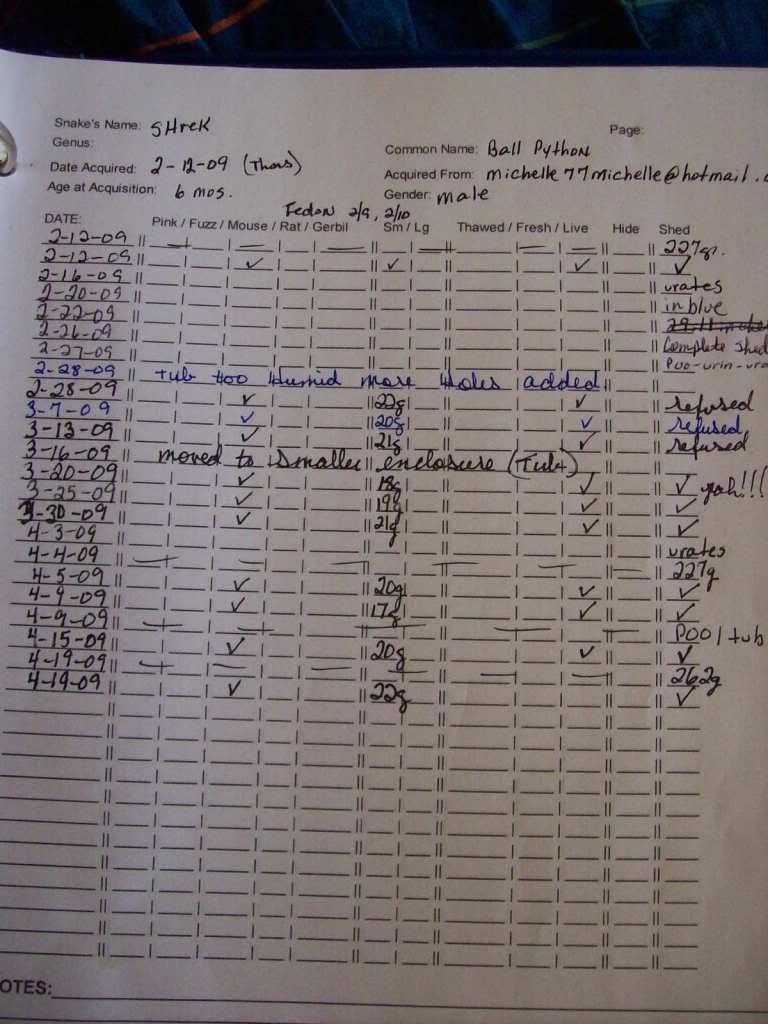 Snake's Name: SHreK
Page:
Genus:
Common Name: Ball Python
Date Acquired: 2-12-09 (Thurs)
Acquired From: michelle77michelle@hotmail.
Age at Acquisition: 6 mos.
Gender: male
Fed on 2/9, 2/10
DATE: Pink / Fuzz / Mouse / Rat / Gerbil Sm / Lg Thawed / Fresh / Live Hide Shed
2-12-09 227g.
2-12-09 ✓ ✓ ✓ ✓
2-16-09 urates
2-20-09 in blue
2-22-09
2-26-09 Complete Shed
2-27-09 Poo-urin-ura
2-28-09 tub too Humid more Holes added
2-28-09 ✓ 22g ✓ refused
3-7-09 ✓ 20g ✓ refused
3-13-09 ✓ 21g ✓ refused
3-16-09 moved to smaller enclosure (Tub)
3-20-09 ✓ 18g ✓ ✓ yah!!!
3-25-09 ✓ 19g ✓ ✓
3-30-09 ✓ 21g ✓ ✓
4-3-09 urates
4-4-09 227g
4-5-09 ✓ 20g ✓ ✓
4-9-09 ✓ 17g ✓ ✓
4-9-09 POO/tub
4-15-09 ✓ 20g ✓ ✓
4-19-09 262g
4-19-09 ✓ 22g ✓
OTES: